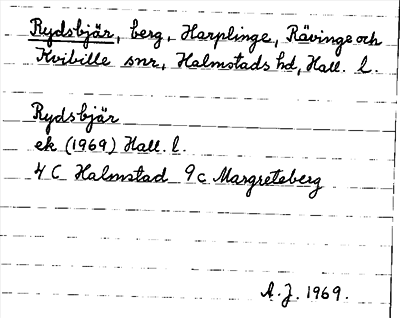 Rydsbjär, berg, Harplinge, Rävinge och
Kvibille snr, Halmstads hd, Hall. l.
Rydsbjär
ek (1969) Hall. l.
4 C Halmstad 9 c Margreteberg
A. J. 1969.